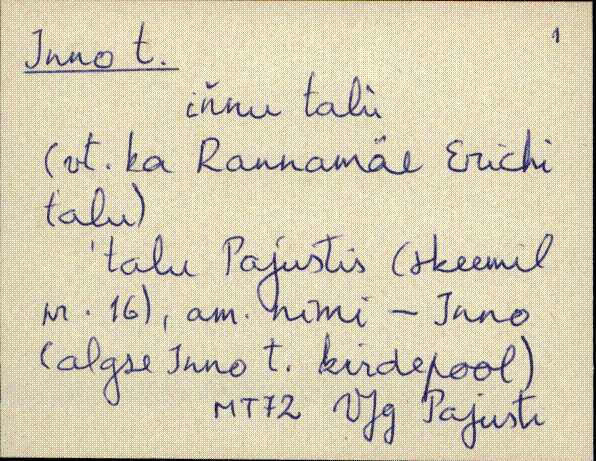 1
Inno t.
iňnu talù
(vt. ka Rannamäe Erichi
talu)
'talu Pajustis (skeemil
nr. 16), am. nimi – Inno
(algse Inno t. kirdepool)
MT72 VJg Pajusti